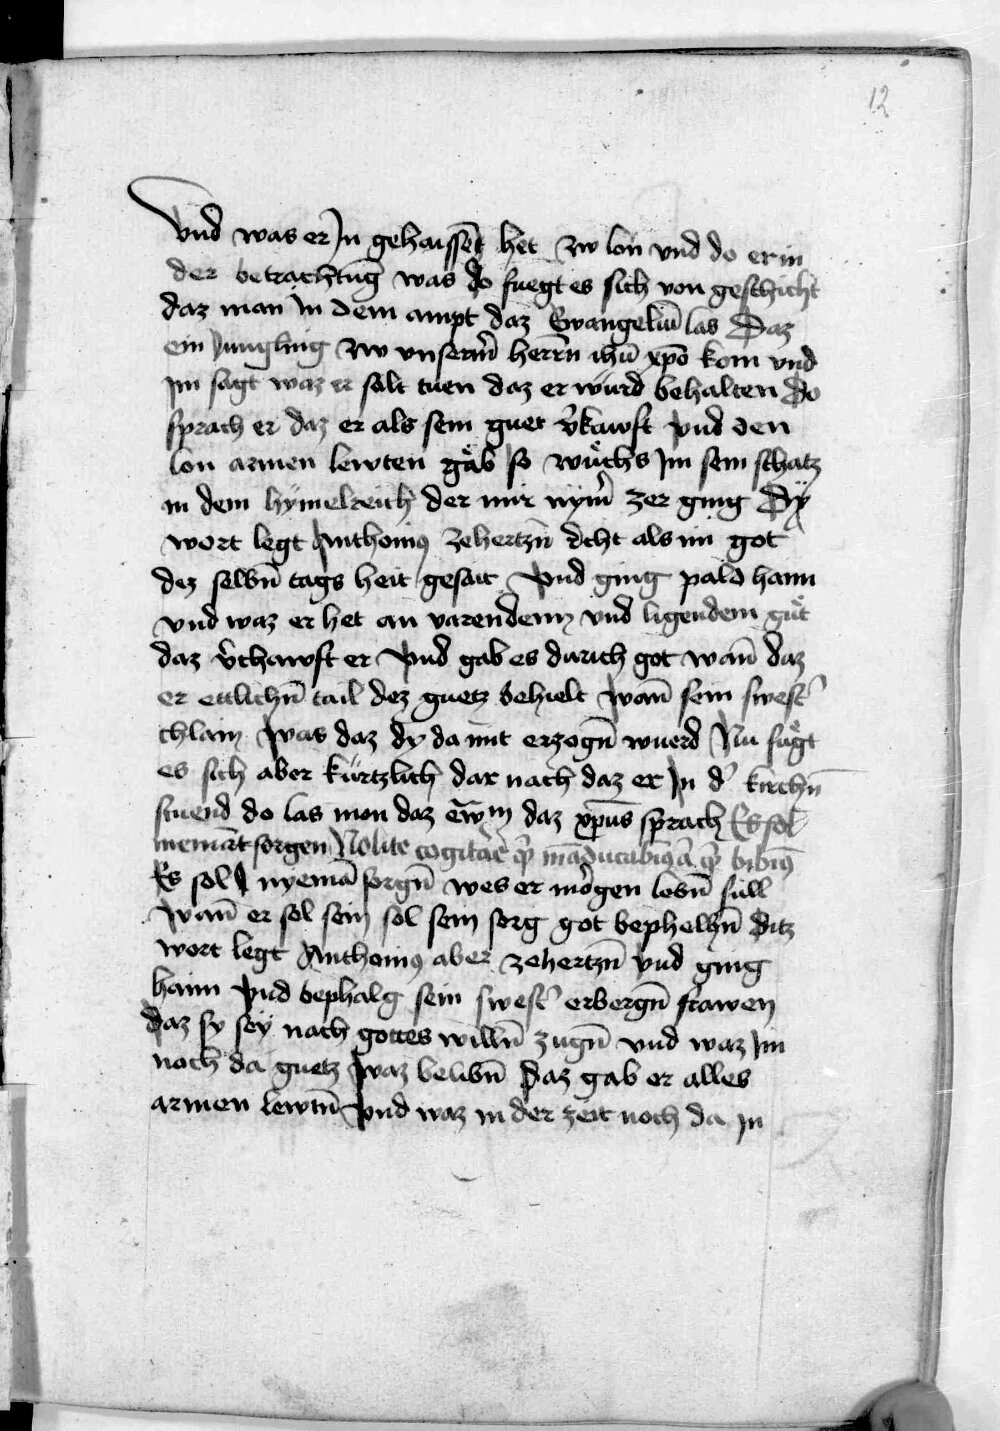 12
Vnd was er Jn gehaissēt het zw lon vnd do er in
der betrachtūg was do fuegt es sich von geschicht
daz man in dem ampt daz Ewangeliū las Daz
ein Jungling zw vnserm̄ herrn ihū xp̄o kom vnd
im sagt waz er solt tuen daz er wurd behalten Do
sprach er daz er als sein guet v̾kawft vnd den
lon armen lewten gäb so wuͤchs Jm sein schatz
in dem hymelreich der mir nym̄ zer ging Dy
wort legt Anthoniꝰ zehertzn̄ als im got
dez selbn̄ tags heit gesait Vnd ging pald haim
vnd waz er het an varendem vnd ligendem guͤt
daz v̾chawft er Vnd gab es durich got wan̄ daz
er ettlichn̄ tail dez guetz behielt wan̄ sein swest̾
chlain was daz dy da mit erzogn̄ wuerd Nu fuͤgt
es sich aber kürtzlich dar nach daz er Jn d̾ kirchn̄
stuend do las mon daz ew̄m daz xp̄us sprach Es sol
niemāt sorgen Nolite cogitare bibitꝭ
Es sol nyemā sorgn̄ wes er morgen lebn̄ süll
wan̄ er sol sein sol sein sorg got bephelhn̄ ditz
wort legt Anthoniꝰ aber zehertzn̄ vnd ging
haim vnd bephalg sein swest̾ erbergn̄ frawen
daz sy sey nach gottes willn̄ zugn̄ vnd waz im
noch da guetz waz belibn̄ Daz gab er alles
armen lewtn̄ Vnd waz in der zeit noch da in